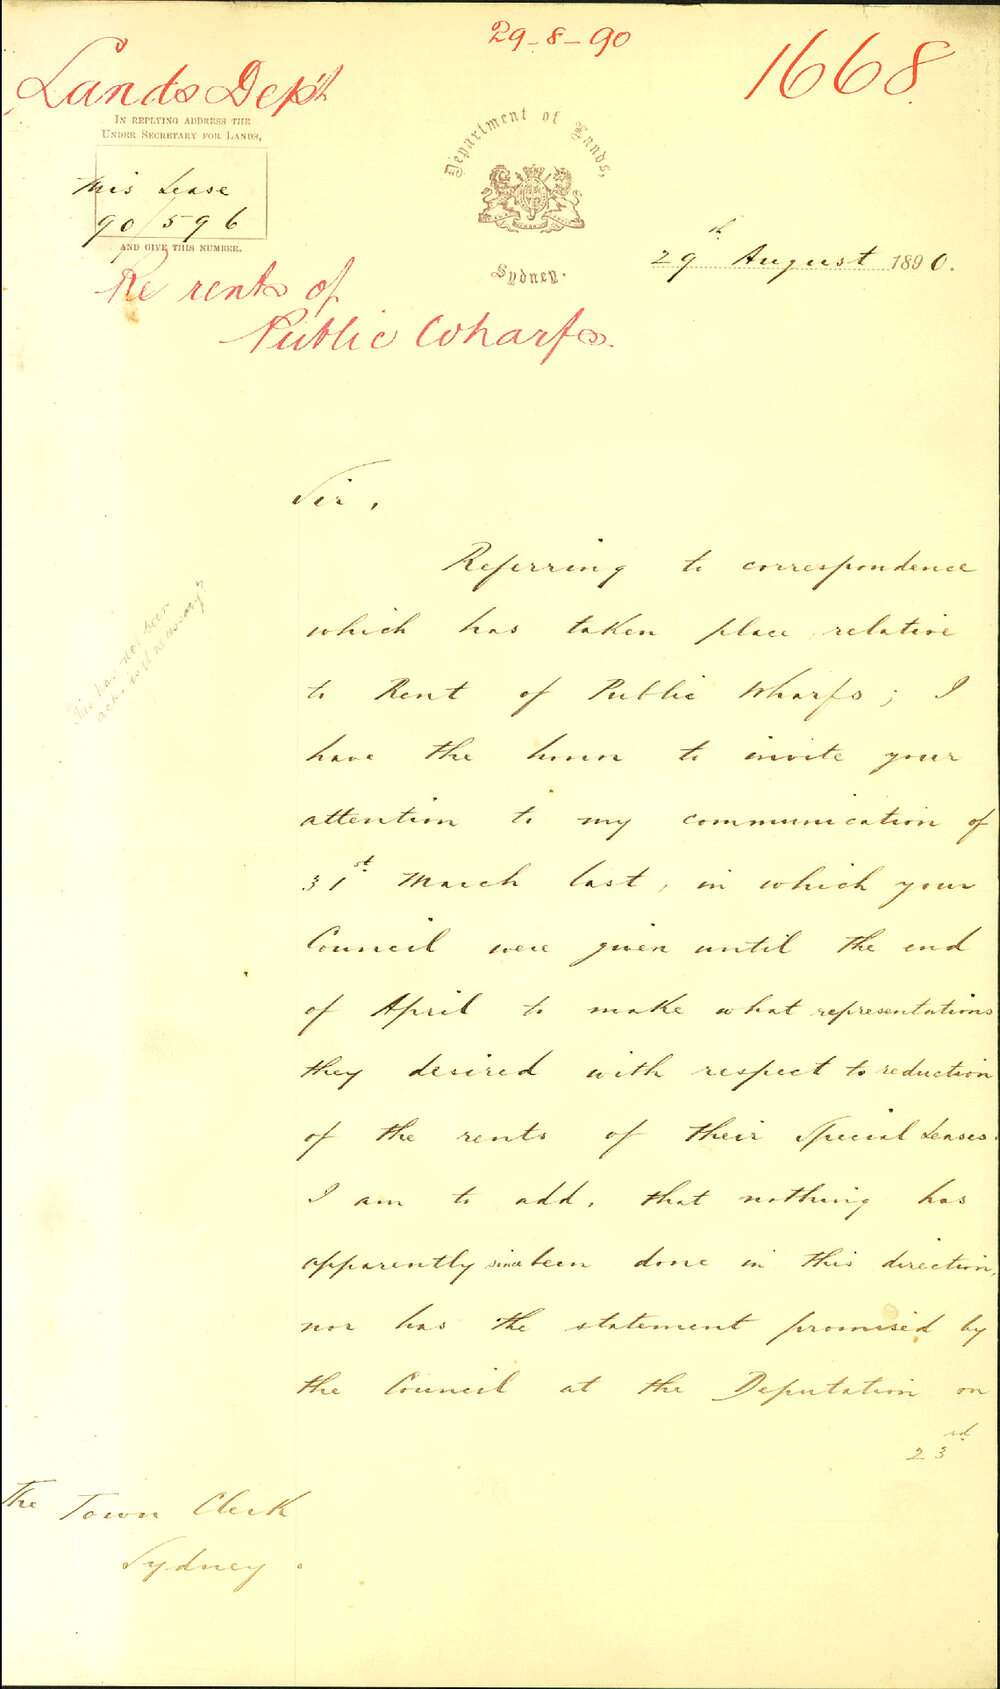 29-8-90
1668
Lands Dep't
IN REPLYING ADDRESS THE
UNDER SECRETARY FOR LANDS,
Mis Lease
90/596
AND GIVE THIS NUMBER.
Department of Lands,
Sydney.
29th August 1890.
Re rents of
Public Wharfs.
Sir,
Referring to correspondence
which has taken place relative
to Rent of Public Wharfs; I
have the honor to invite your
attention to my communication of
31st March last, in which your
Council were given until the end
of April to make what representations
they desired with respect to reduction
of the rents of their Special Leases.
I am to add, that nothing has
apparently since been done in this direction,
nor has the statement promised by
the Council at the Deputation on
23rd
This has not been
acted with necessary?
The Town Clerk
Sydney.